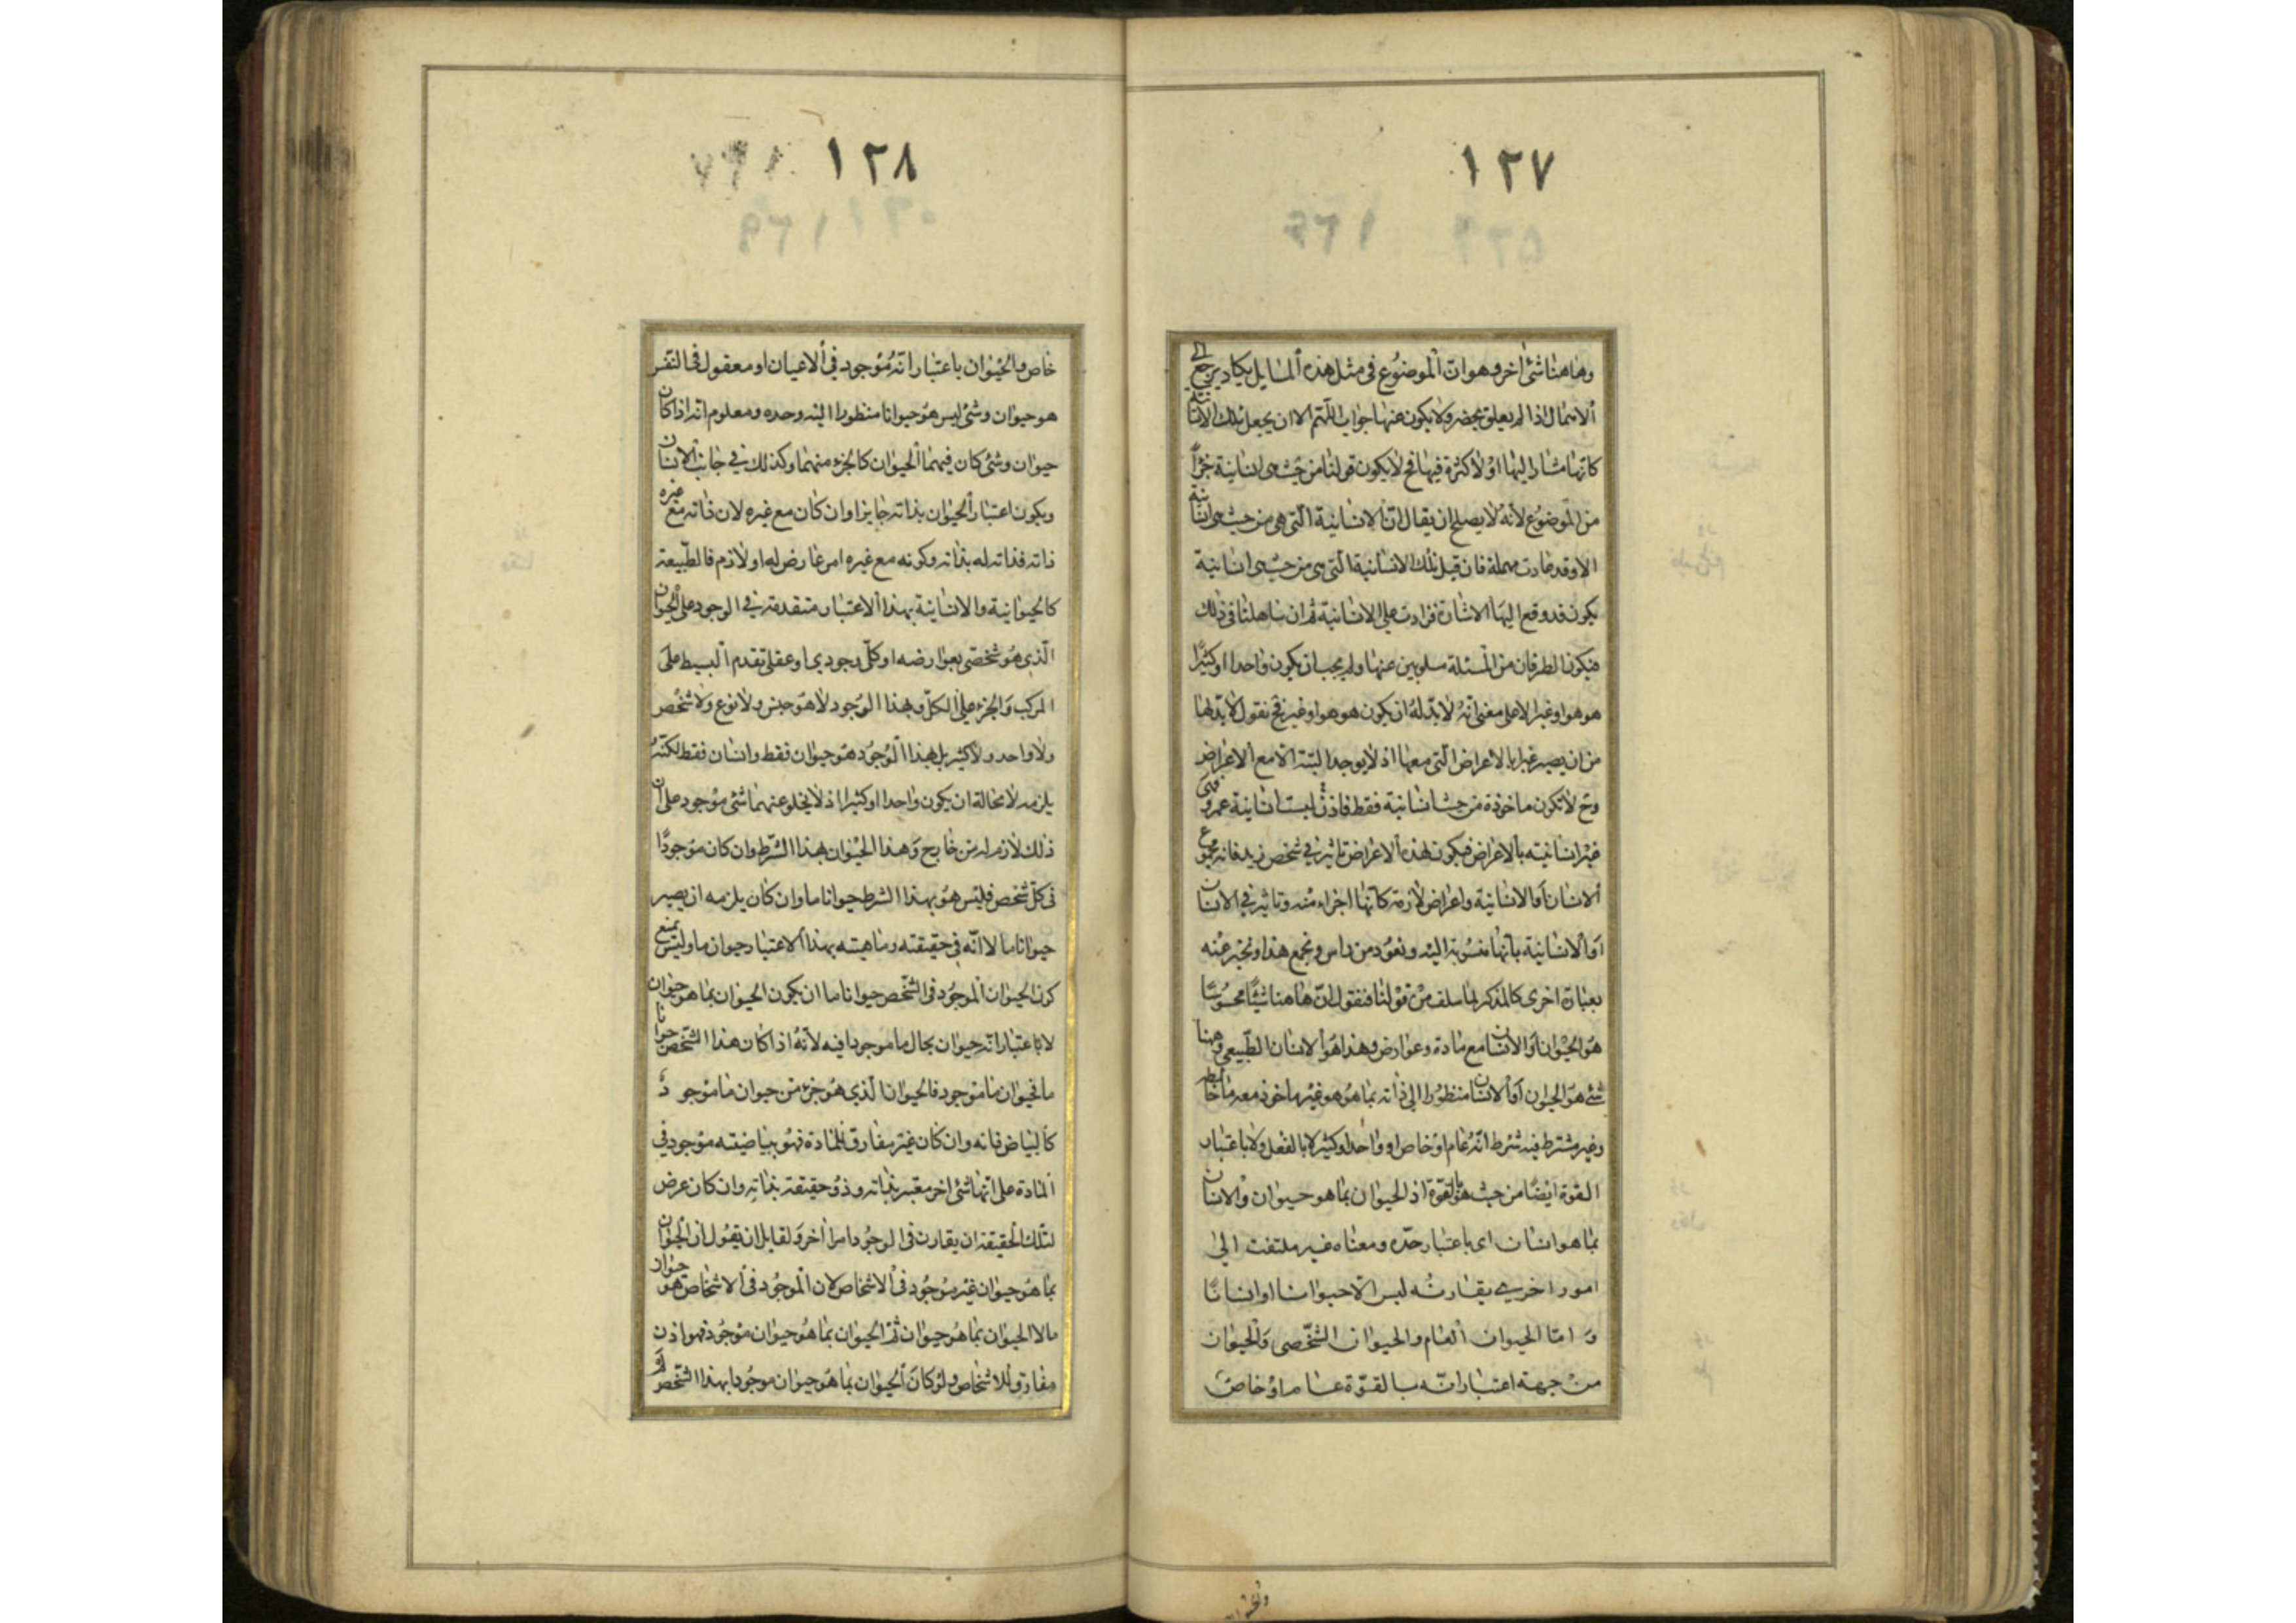 ١٢٧
وهاهنا شئ اخر وهو ان الموضوع فى مثل هذه المسايل يكاد يرجع الى
الاهمال اذا لم يعلق بحصر ولا يكون عنها جواب اللهم الا ان يجعل تلك الانسانية
كانها مشار اليها او لا كثرة فيها فح لا يكون قولنا من حيث هى انسانية جزأ
من الموضوع لانه لا يصلح ان يقال ان الانسانية التى هى من حيث هى انسانية
الا وقد عادت مهملة فان قيل تلك الانسانية التى هى من حيث هى انسانية
يكون قد وقع اليها الاشارة فزادت على الانسانية ثم ان ساهلنا فى ذلك
فيكون الطرفان من المسئلة مسلوبين عنها ولم يجب ان يكون واحدا او كثيرا
هو هو او غيرا الا على معنى انه لا بد له ان يكون هو هو او غير فح نقول لا بد لها
من ان يصير غيرا بالاعراض التى معها اذ لا يوجد البتة الا مع الاعراض
وح لا تكون ماخوذة من حيث انسانية فقط فاذن ليست انسانية عمرو فهى
غير انسانيته بالاعراض فيكون لهذه الاعراض تاثير فى شخص زيد فانه مجموع
الانسان او الانسانية واعراض لازمة كانها اجزاء منه وتاثير فى الانسان
او الانسانية بانها منسوبة اليه ونعود من راس ونجمع هذا ونخبر عنه
بعبارة اخرى كالمذكر لما سلف من قولنا فنقول ان هاهنا شيئا محسوسا
هو الحيوان او الانسان مع مادة وعوارض وهذا هو الانسان الطبيعى وهنا
شئ هو الحيوان او الانسان منظورا الى ذاته بما هو هو غير ماخوذ معه ما خالطه
وغير مشترط فيه شرط انه عام او خاص او واحد او كثير لا بالفعل ولا باعتبار
القوة ايضا من حيث هو بالقوة اذ الحيوان بما هو حيوان والانسان
بما هو انسان اى باعتبار حده ومعناه غير ملتفت الى
امور اخرى يقارنه ليس الا حيوانا او انسانا
و اما الحيوان العام والحيوان الشخصى والحيوان
من جهة اعتبار انه بالقوة عام او خاص
١٢٨
خاص والحيوان باعتبار انه موجود فى الاعيان او معقول فى النفس
هو حيوان وشئ ليس هو حيوانا منظورا اليه وحده ومعلوم انه اذا كان
حيوان وشئ كان فيهما الحيوان كالجزء منهما وكذلك فى جانب الانسان
ويكون اعتبار الحيوان بذاته جايزا وان كان مع غيره لان ذاته مع غيره
ذاته فذاته له بذاته وكونه مع غيره امر عارض له او لازم فالطبيعة
كالحيوانية والانسانية بهذا الاعتبار متقدمة فى الوجود على الحيوان
الذى هو شخصى بعوارضه او كلى وجودى او عقلى تقدم البسيط على
المركب والجزء على الكل وبهذا الوجود لا هو جنس ولا نوع ولا شخص
ولا واحد ولا كثير بل بهذا الوجود هو حيوان فقط وانسان فقط لكنه
يلزمه لا محالة ان يكون واحدا او كثيرا اذ لا يخلو عنهما شئ موجود على ان
ذلك لازم له من خارج وهذا الحيوان بهذا الشرط وان كان موجودا
فى كل شخص فليس هو بهذا الشرط حيوانا ما وان كان يلزمه ان يصير
حيوانا ما لا انه فى حقيقته وماهيته بهذا الاعتبار حيوان ما وليس يمنع
كون الحيوان الموجود فى الشخص حيوانا ما ان يكون الحيوان بما هو حيوان
لا باعتبار انه حيوان بحال ما موجودا فيه لانه اذا كان هذا الشخص حيوانا
ما فحيوان ما موجود فالحيوان الذى هو جزء من حيوان ما موجود
كالبياض فانه وان كان غير مفارق للمادة فهو ببياضيته موجود فى
المادة على انها شئ اخر معتبر بذاته وذو حقيقة بذاته وان كان عرض
لتلك الحقيقة ان يقارن فى الوجود امرا اخر ولقايل ان يقول ان الحيوان
بما هو حيوان غير موجود فى الاشخاص لان الموجود فى الاشخاص هو حيوان
ما لا الحيوان بما هو حيوان ثم الحيوان بما هو حيوان موجود فهو اذن
مفارق للاشخاص ولو كان الحيوان بما هو حيوان موجودا بهذا الشخص